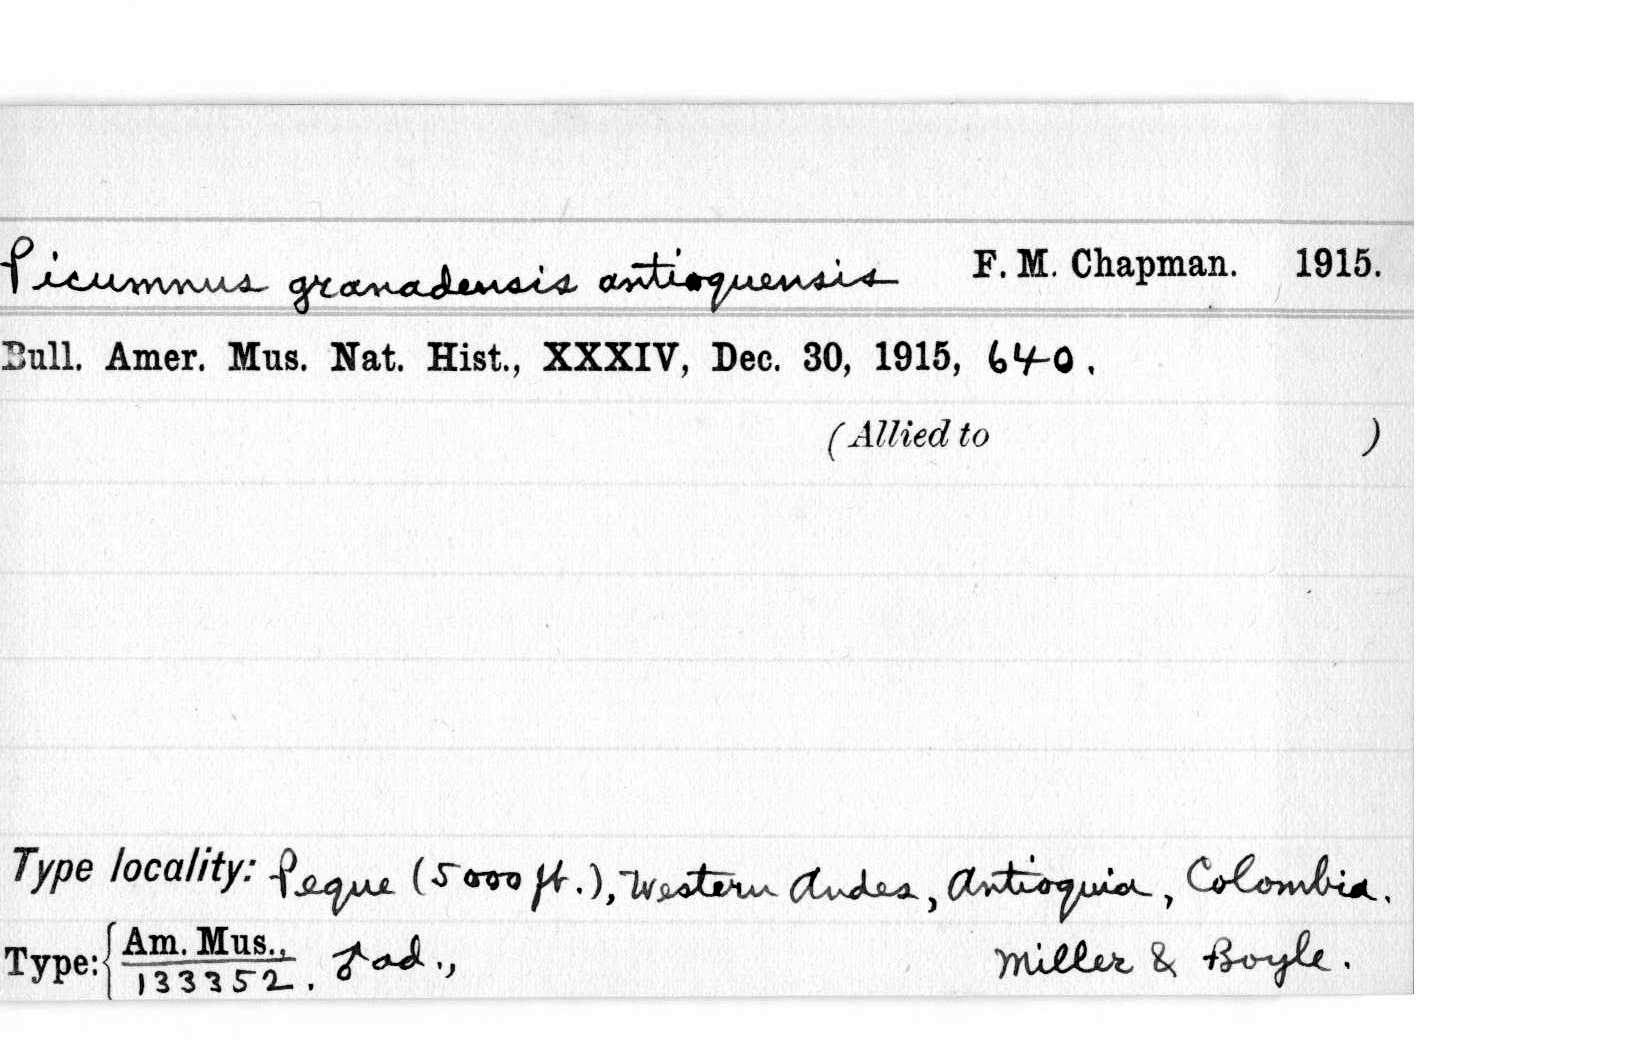 Picumnus granadensis antioquensis F. M. Chapman. 1915.
Bull. Amer. Mus. Nat. Hist., XXXIV, Dec. 30, 1915, 640.
(Allied to )
Type locality: Peque (5000 ft.), Western Andes, Antioquia, Colombia.
Type: { Am. Mus., 133352. ♂ ad., Miller & Boyle.